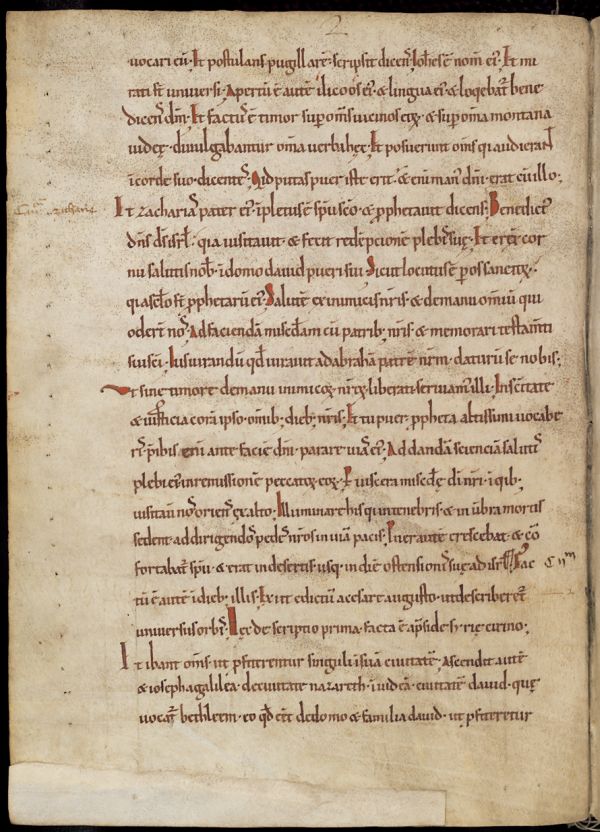 2
uocari eū. Et postulans pugillarē. scripsit dicenſ. Iohs ē nom̄ ei᷒. Et mi
rati st̄ uniuersi. Apertū ē autē ilico os ei᷒. & lingua ei᷒. & loqebat᷒ bene
dicenſ dm̄. Et factu᷒ ē timor sup om̄s uicinos eoꝝ. & sup om̄a montana
iudeę. diuulgabantur om̄a uerba hęc. Et posuerunt om̄s qui audierant
in corde suo. dicentes. Qid putas puer iste erit. & eni man᷒ dn̄i. erat cū illo.
Et zacharias pater ei᷒. īpletus ē spū scō. & prophetauit dicens. Benedict᷒
dn̄s ds̄ isrl̄. quia uisitauit. & fecit redēpcionē plebis suę. Et erex̄ cor
nu salutis nob̄. ī domo dauid pueri sui. Sicut locutus ē per os sanctoꝝ.
qui a sclo st̄ prophetarū ei᷒. Salutē ex inimicis nr̄is. & de manu om̄iū qui
odert̄ nos. Ad faciendā miscdiam cū patrib; nr̄is. & memorari testamti
sui sci. Iusiurandū qd̄ iurauit ad abrahā patrē nr̄m. daturū se nobis.
Vt sine timore de manu inimicoꝝ nr̄oꝝ liberati seruiam᷒ illi. In scītate
& iusticia corā ipso. omib; dieb; nr̄is. Et tu puer. ppheta altissimi uocabe
ris. p̄ibis eni ante faciē dn̄i. parare uias ei᷒. Ad dandā scienciā salutis
plebi ei᷒. in remissionē peccatoꝝ eoꝝ. P uiscera miscdę di nr̄i. ī qib;
uisitauit nos oriens ex alto. Illuminare his qui in tenebris. & in ūbra mortis
sedent. ad dirigendos pedes nr̄os in uiā pacis. Puer autē crescebat. & cō
fortabat᷒ spū. & erat in desertis usq; in diē ostensionis suę ad isrl̄. Fac
tū ē autē ī dieb; illis. Exiit edictū a cesare augusto. ut describeret᷒
uniuersus orbis. Hęc descriptio prima. facta ē a p̄side syrię cirino.
Et ibant om̄s ut p̄fiterentur singuli ī suā ciuitatē. Ascendit autē
& ioseph a galilea. de ciuitate nazareth. ī iudeā. ciuitatē dauid. quę
uocat᷒ bethleem. eo qd̄ eēt de domo & familia dauid. ut p̄fiteretur